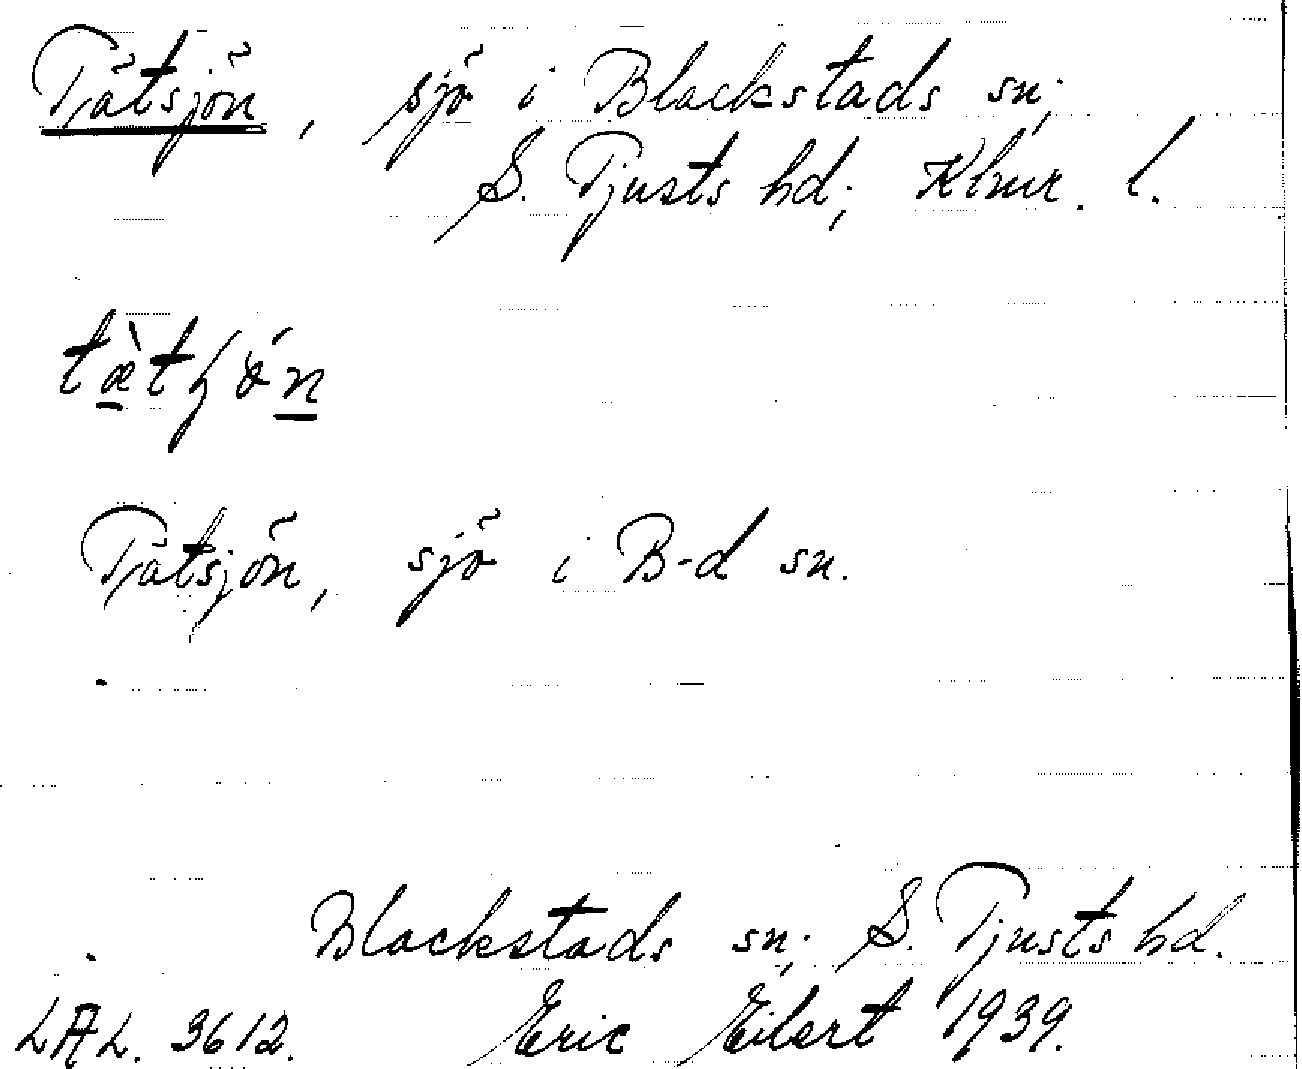 Tätsjön, sjö i Blackstads sn;
S. Tjusts hd; Klmr. l.
Tätsjön, sjö i B-d sn.
Blackstads sn; S. Tjusts hd.
LAL. 3612. Eric Eilert 1939.